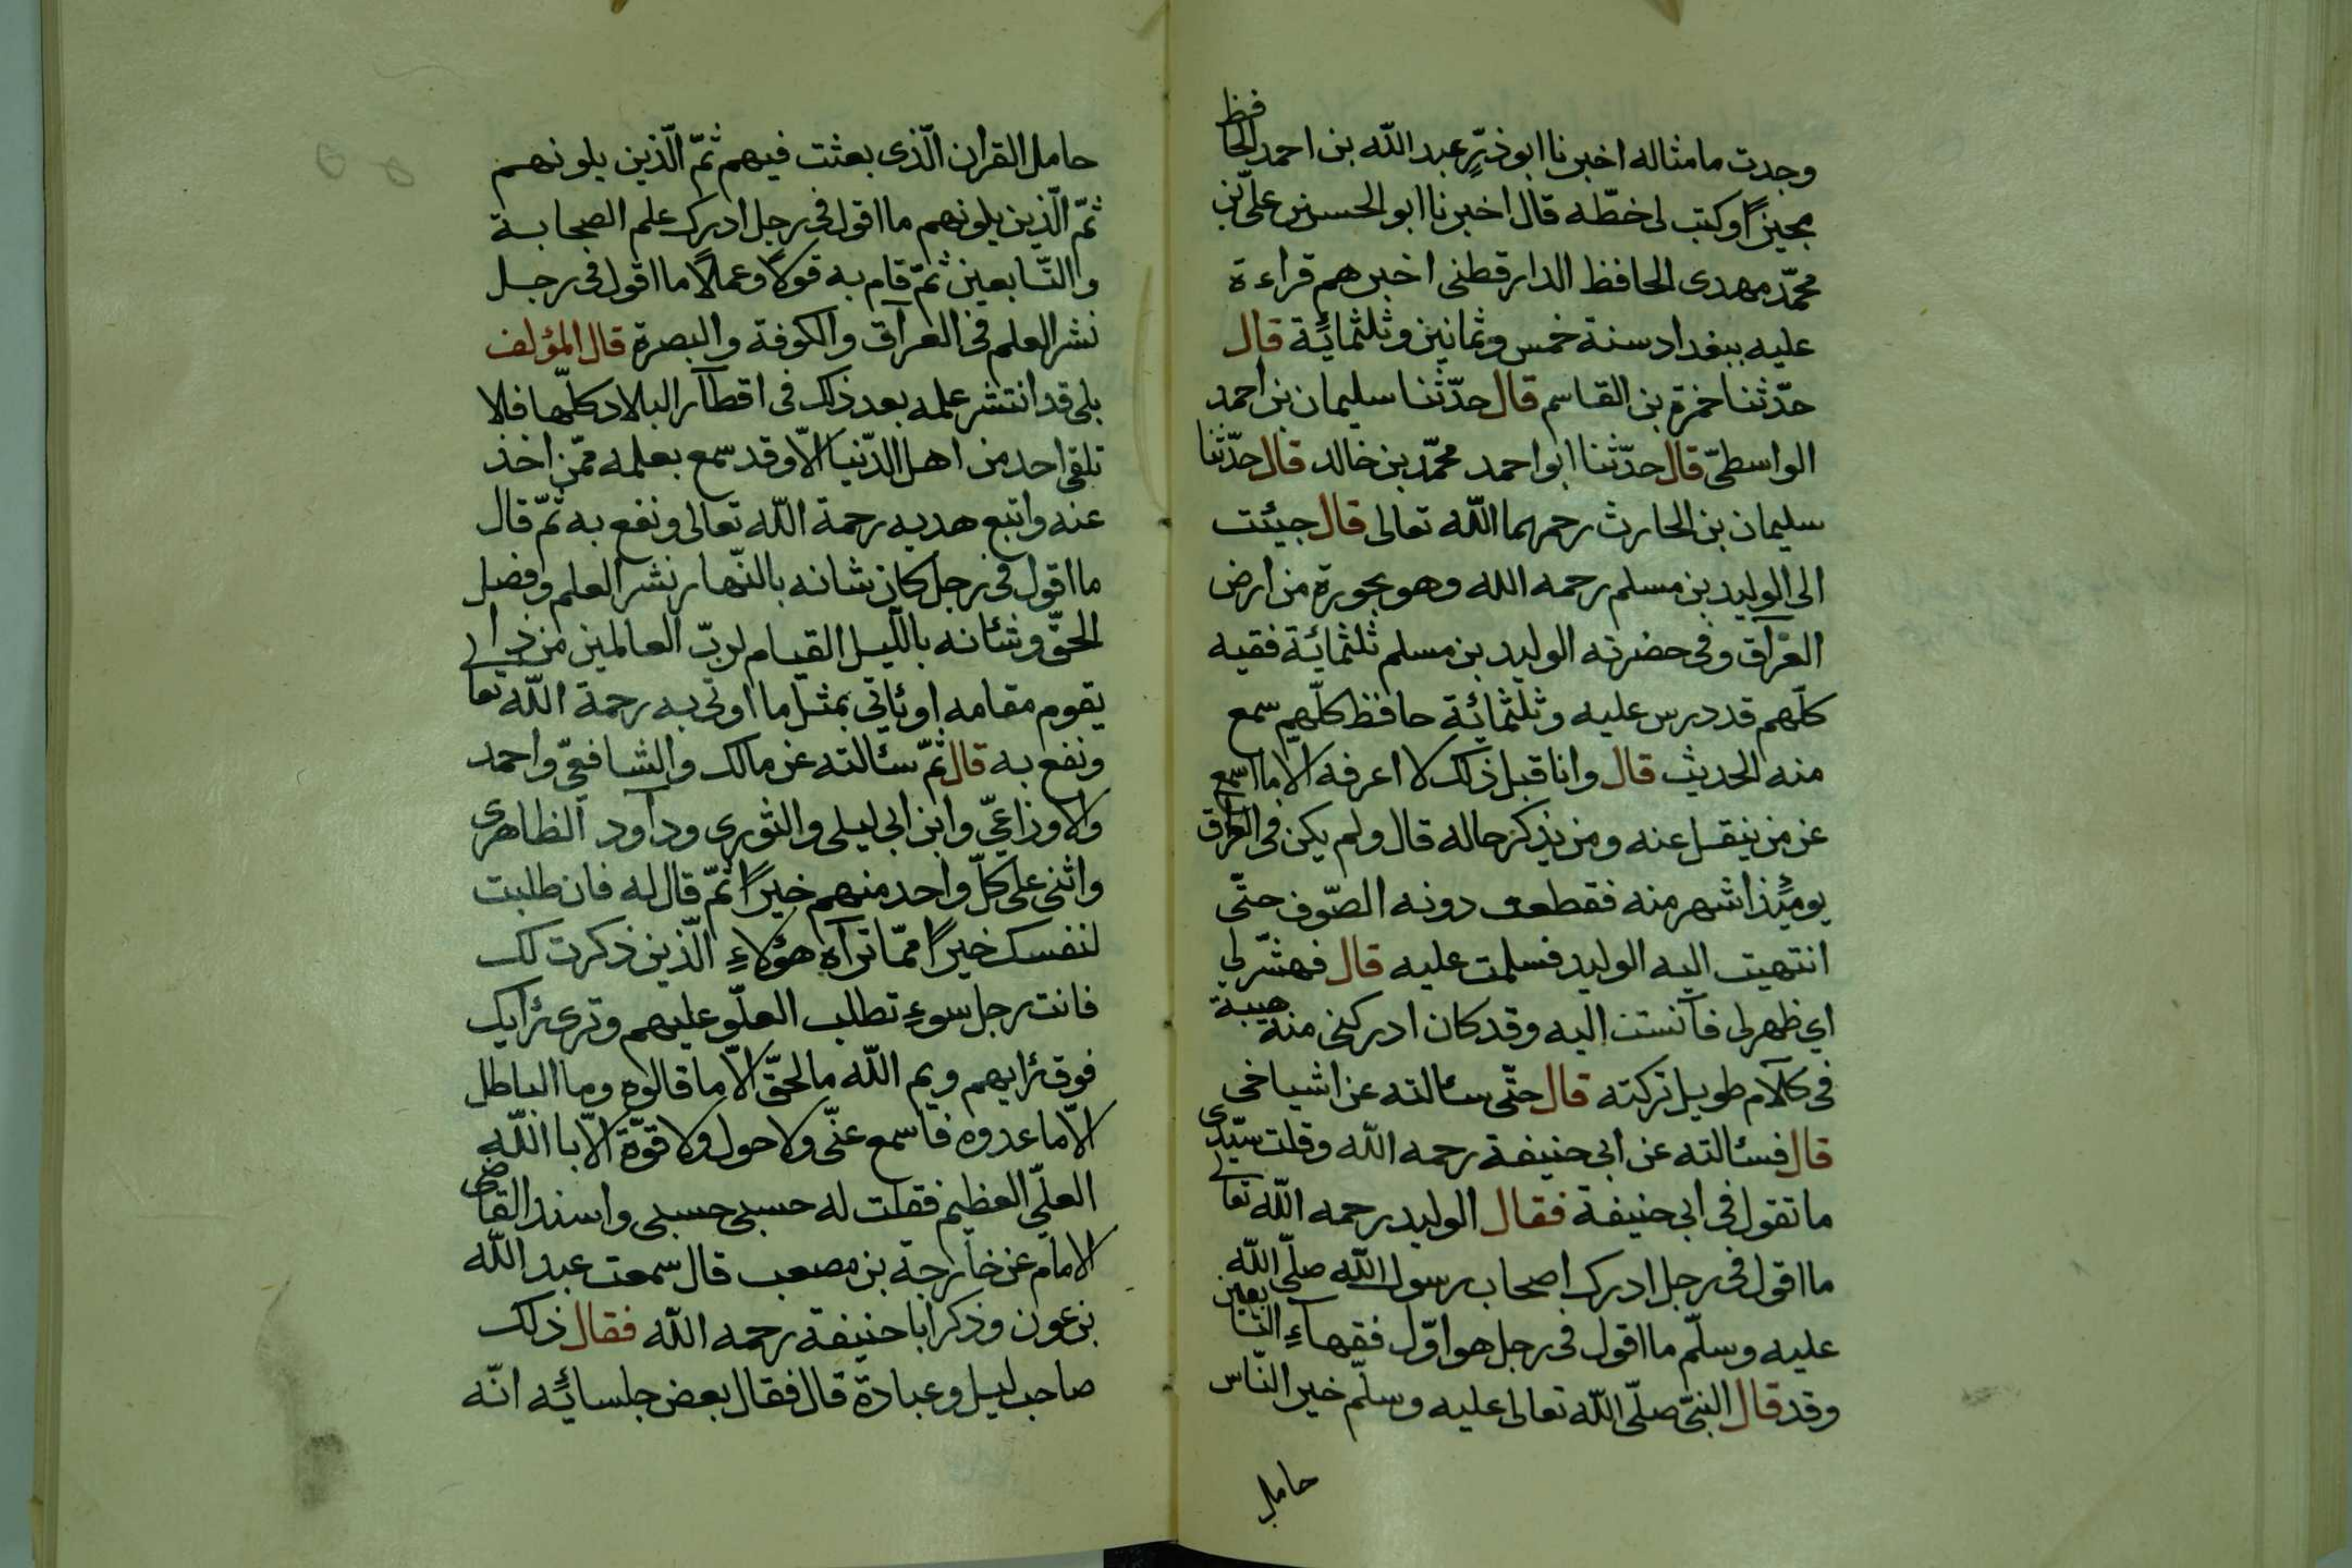 وجدت ما مثاله اخبرنا ابو ذرّ عبد اللّه بن احمد الحافظ
مجيزًا وكتب لى خطّه قال اخبرنا ابو الحسن بن علىّ بن
محمّد مهدى الحافظ الدارقطنى اخبرهم قراءة
عليه ببغداد سنة خمس وثمانين وثلثمائة قال
حدّثنا حمزة بن القاسم قال حدّثنا سليمان بن احمد
الواسطىّ قال حدّثنا ابو احمد محمّد بن خالد قال حدّثنا
سليمان بن الحارث رحمهما اللّه تعالى قال جيئت
الى الوليد بن مسلم رحمه الله وهو بجورة من ارض
العراق وفى حضرته الوليد بن مسلم ثلثمائة فقيه
كلّهم قد درس عليه وثلثمائة حافظ كلّهم سمع
منه الحديث قال وانا قبل ذلك لا اعرفه الا ما اسمع
عن من ينقل عنه ومن يذكر حاله قال ولم يكن فى العراق
يومئذ اشهر منه فقطعت دونه الصّوف حتّى
انتهيت اليه الوليد فسلمت عليه قال فهشّر لى
اي ظهر لى فآنست اليه وقد كان ادركنى منه هيبة
فى كلام طويل تركته قال حتّى سئالته عن اشياخى
قال فسئالته عن ابى حنيفة رحمه اللّه وقلت سيّدى
ما تقول فى ابى حنيفة فقال الوليد رحمه اللّه تعالى
ما اقول فى رجل ادرك اصحاب رسول اللّه صلّى اللّه
عليه وسلّم ما اقول فى رجل هو اوّل فقهاءِ التابعين
وقد قال النبىّ صلّى اللّه تعالى عليه وسلّم خير النّاس
حامل
حامل القران الّذى بعثت فيهم ثمّ الّذين يلونهم
ثمّ الّذين يلونهم ما اقول فى رجل ادرك علم الصحابة
والتّابعين ثمّ قام به قولًا وعملًا ما اقول فى رجل
نشر العلم فى العراق والكوفة والبصرة قال المؤلف
بلى قد انتشر علمه بعد ذلك فى اقطار البلاد كلّها فلا
تلقى احد من اهل الدّنيا الّا وقد سمع بعلمه ممّن اخذ
عنه واتبع هديه رحمة اللّه تعالى ونفع به ثمّ قال
ما اقول فى رجل كان شانه بالنّهار نشر العلم وفصل
الحقّ وشئانه باللّيل القيام لربّ العالمين من ذا
يقوم مقامه او يئاتى بمثل ما اوتى به رحمة اللّه تعالى
ونفع به قال ثمّ سئالته عن مالك والشافعىّ واحمد
والاوزاعىّ وابن ابى ليلى والثورى وداود الظاهرى
واثنى على كلّ واحد منهم خيرًا ثمّ قال له فان طلبت
لنفسك خيرًا ممّا تراه هؤلاءِ الّذين ذكرت لك
فانت رجل سوءٍ تطلب العلوّ عليهم وترى رئايك
فوق رئايهم ويم اللّه ما الحقّ الّا ما قالوه وما الباطل
الّا ما عدوه فاسمع عنّى ولا حول ولا قوّة الّا باللّه
العلىّ العظيم فقلت له حسبى حسبى واسند القاضى
الامام عن خارجة بن مصعب قال سمعت عبد اللّه
بن عون وذكر ابا حنيفة رحمه اللّه فقال ذلك
صاحب ليل وعبادة قال فقال بعض جلسائه انّه